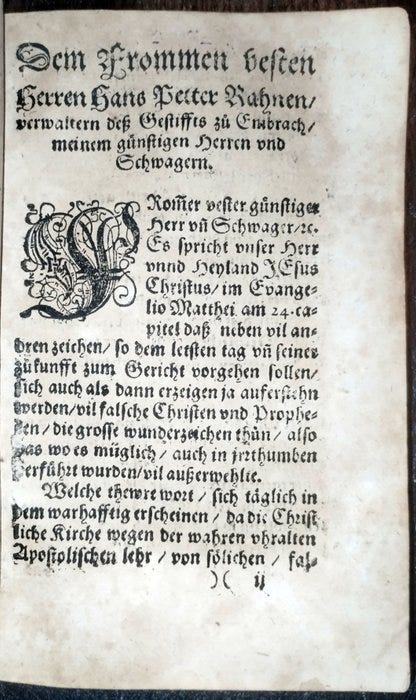 Dem From̄en vesten
Herren Hans Petter Rahnen/
verwaltern deß Gestiffts zů Embrach/
meinem günstigen Herren vnd
Schwagern.
FRom̄er vester günstiger
Herr vn̄ Schwager/ꝛc.
Es spricht vnser Herr
vnnd Heyland JEsus
Christus/ im Evange-
lio Matthei am 24. ca-
pitel daß neben vil an-
dren zeichen/ so dem letsten tag vn̄ seiner
zůkunfft zum Gericht vorgehen sollen/
sich auch als dann erzeigen ja auferstehn
werden/ vil falsche Christen vnd Prophe-
ten/ die grosse wunderzeichen thůn/ also
das wo es müglich/ auch in jrrthumben
verführt wurden/ vil außerwehlte.
Welche thewre wort/ sich täglich in
dem warhafftig erscheinen/ da die Christ
liche Kirche wegen der wahren vhralten
Apostolischen lehr/ von sölichen/ fal-
)( ij